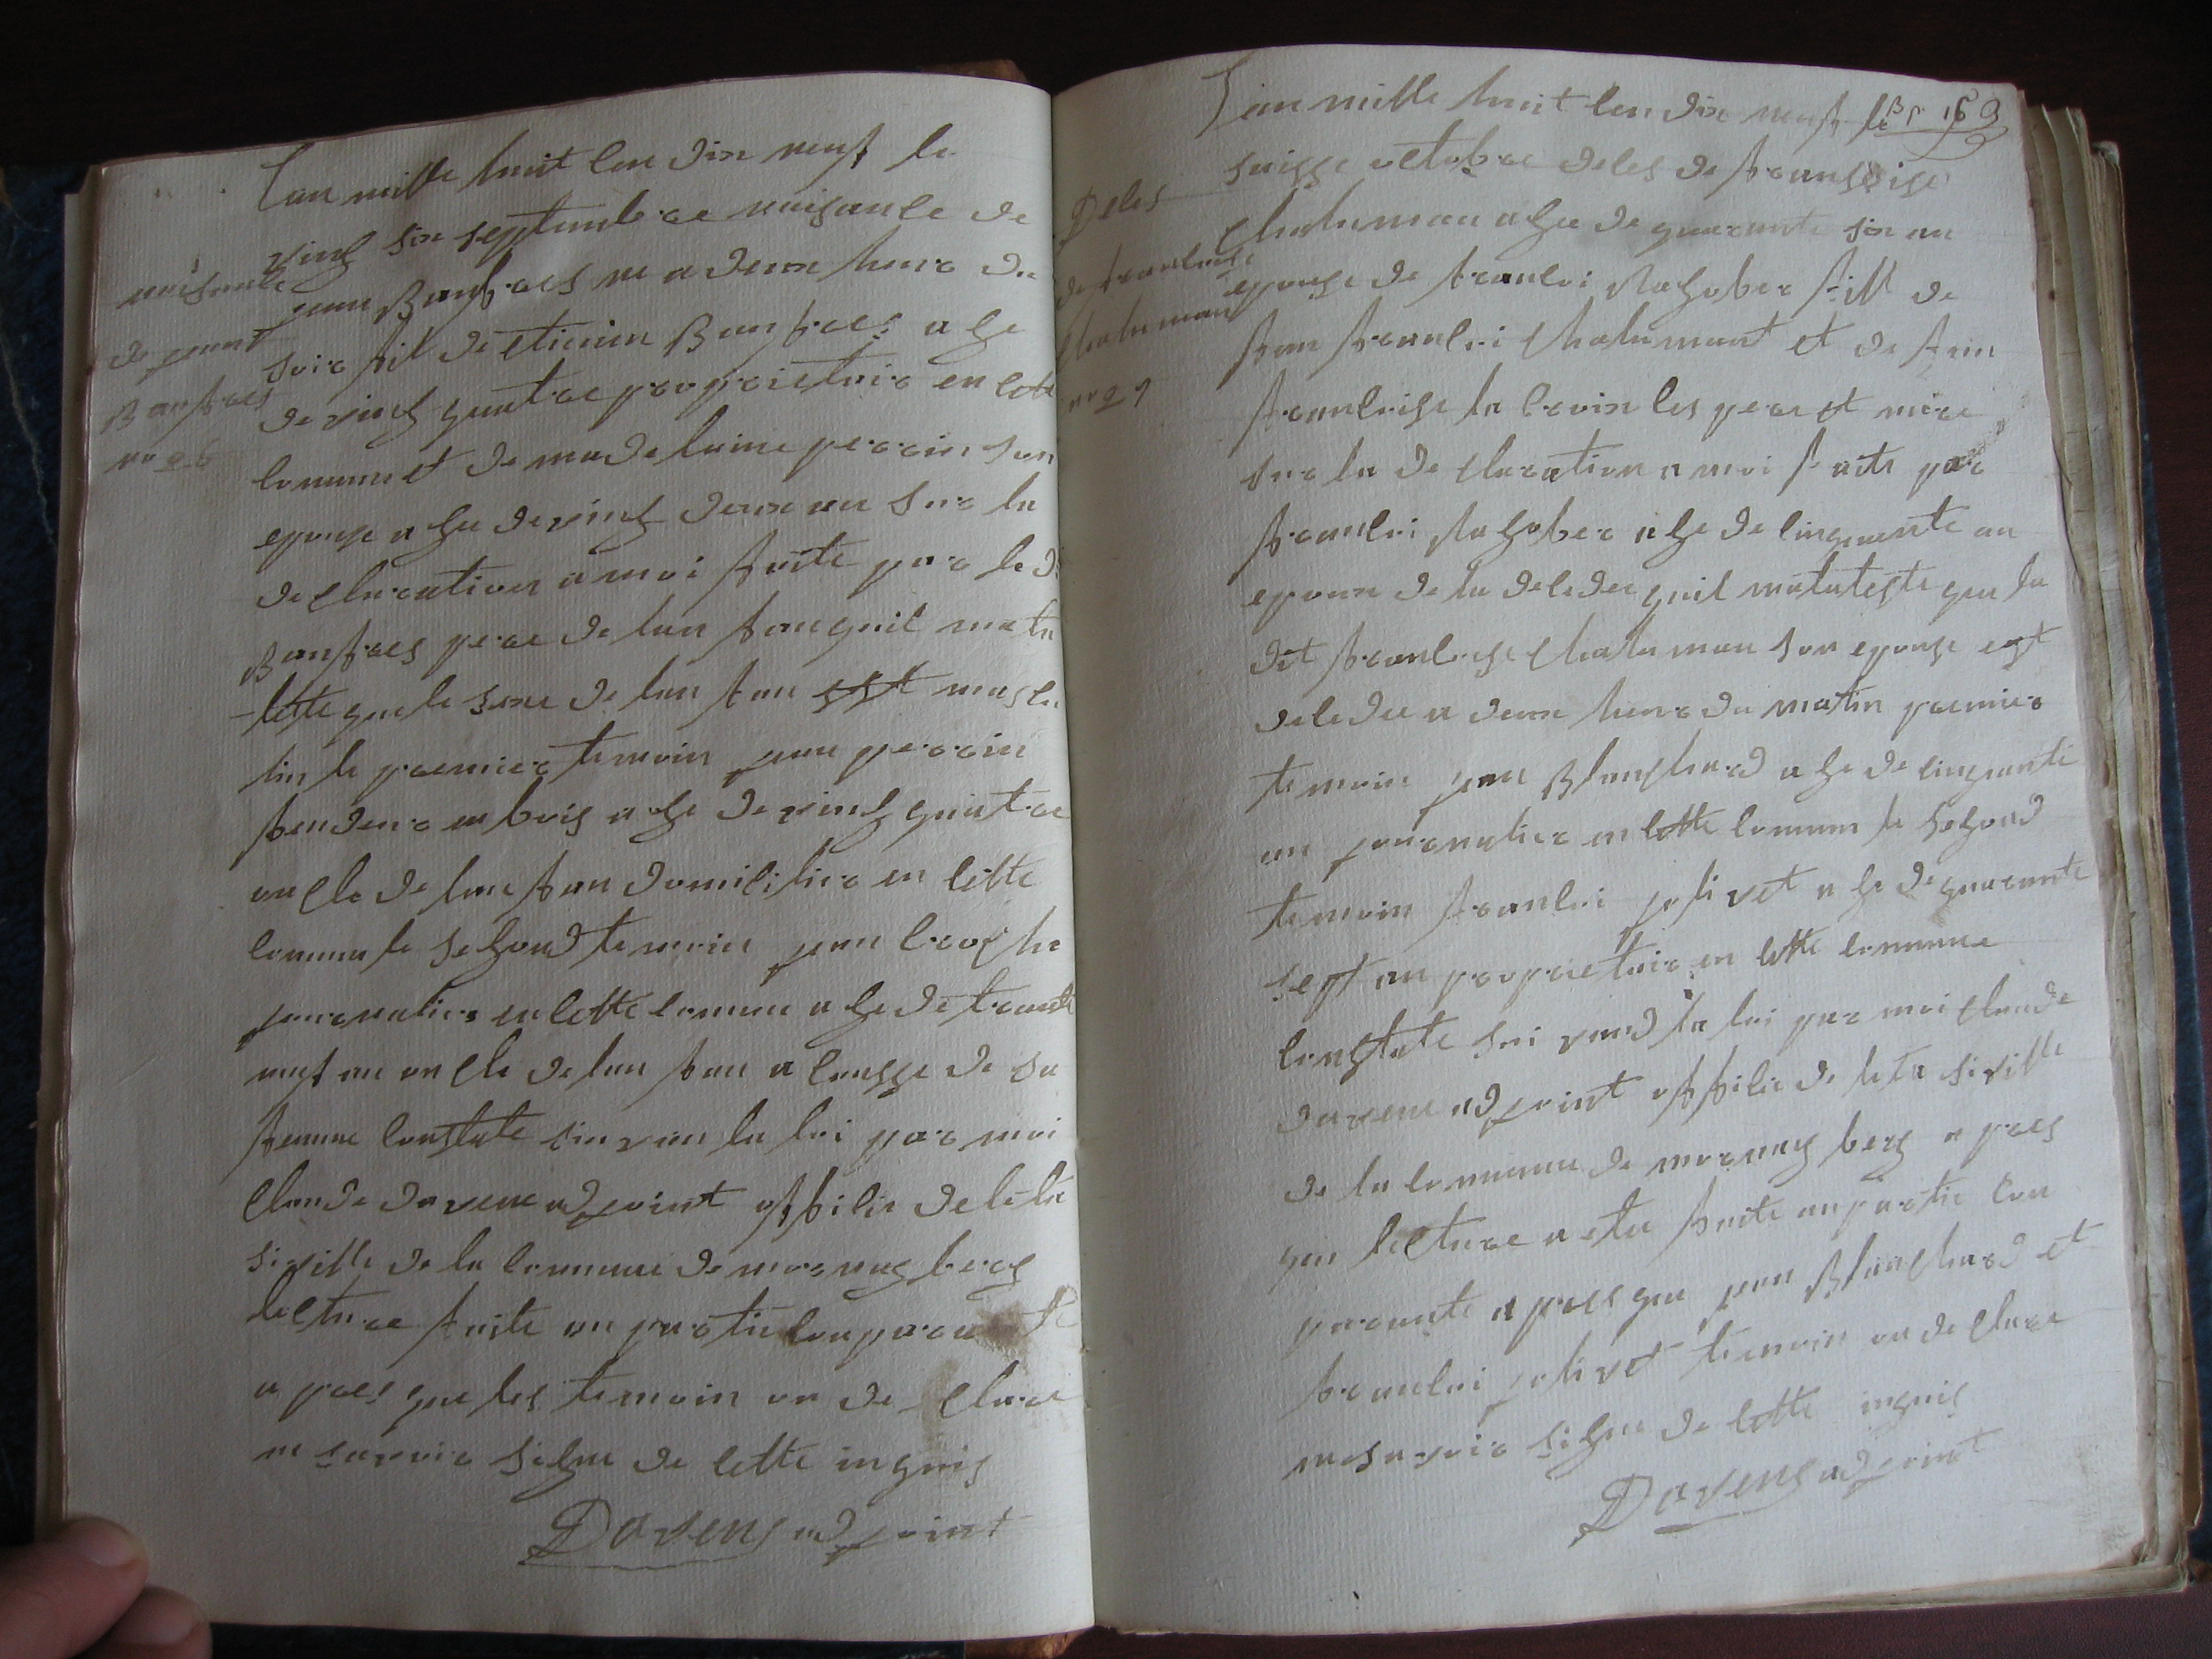 naisanse
de jeant
Banfraes
no 26
Lan mille huit cen dix neuf le
vinq six septembrae naisanse de
jean Banfraes ne a deux heure du
soire fil de etienien Banfraes a ge
de vinq quatrae propraietaire en cette
comune et de madelaine perrain son
epouse a gee de vinq deux an sur la
declaration a moi faite par le d
Banfraes perae de lan fan quil mata
teste que le sexe de lan fan est mascu
lin le praemiera temoin jean perrain
fendeur en bois a ge de vinq quatrae
oncle de lan fan domicilier en cette
comune le segond temoin jean crocher
journalier en cette comune a ge de traente
neuf an oncle de lan fan a causse de sa
femme constate suivan la loi par moi
Claude Davene adjoint officier de leta
siville de la comune de mornay berg
lecturae faite au partie conparaente
apraes que les temoin on declarae
ne savoir signe de cette inquis
Davens adjoint
Deles
de franloise
Chaluman
no 27
Lan mille huit cen dix neuf le 163
saisse octobrae deles de fransoise
Chaluman a gee de quarante six an
epouse de franloi Ragober fill de
feon franloi Chalumant et de feun
franloise la croix les perae et mère
sur la declaration a moi faite par
franloi Ragober a ge de cinquente an
epoux de la deledee quil matateste que la
dit franloise Chaluman son epouse est
deledee a deux heure du matin praemier
temoin jean Blanchard a ge de cinquante
an journalier en cette comune le segond
temoin franloi jolivet a ge de quarante
sept an propraietaire en cette comune
constate sui vand la loi par moi Claude
Davene adjoint officier de leta siville
de la comune de mornay berg apraes
que lecturae a etee faite au partie con
paraante apraes que jean Blanchard et
franloi jolivet temoin on declarae
ne savoir signe de cette inquis
Davens adjoint